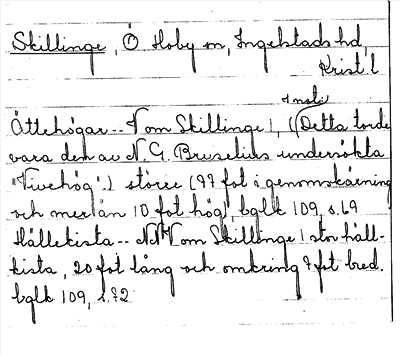 Skillinge, Ö Hoby sn, Ingelstads hd,
Krist. l
Ättehögar -- V om Skillinge 1, (Detta torde
vara den av N. G. Bruzelius undersökta
"Vivehög".) större (99 fot i genomskärning
och mer än 10 fot hög), bglk 109, s. 69
Hällekista -- NNV om Skillinge 1 stor häll-
kista, 20 fot lång och omkring 7 fot bred.
bglk 109, s. 72